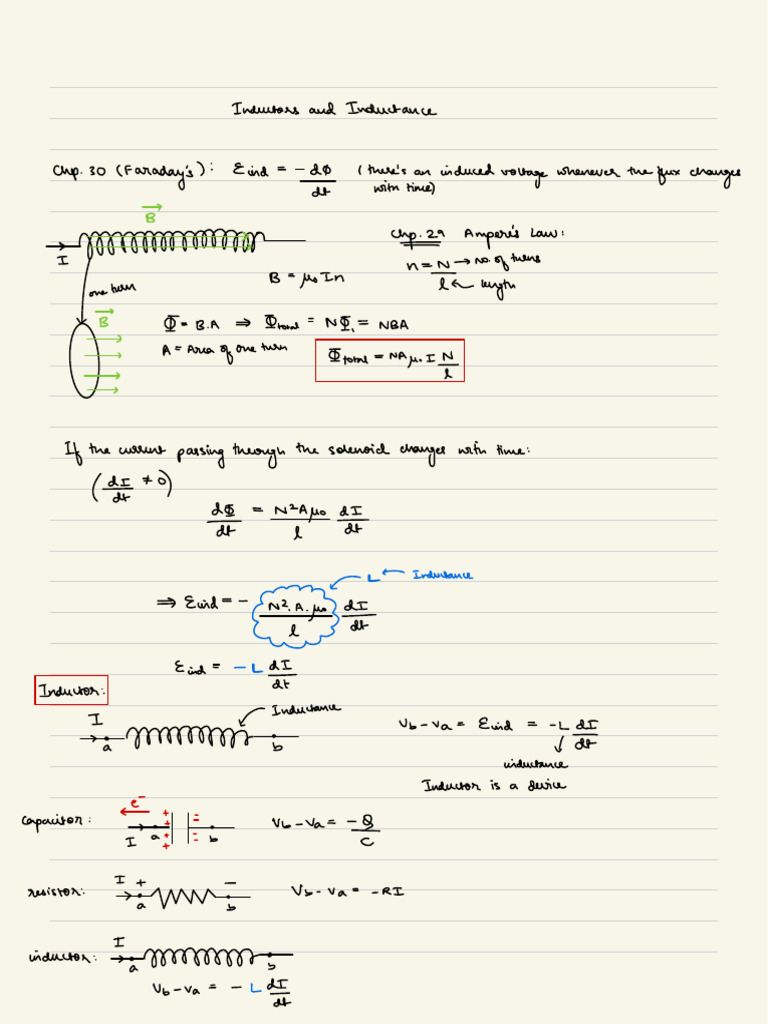 Inductors and Inductance
Chp. 30 (Faraday's): Ɛind = - dΦ/dt (there's an induced voltage whenever the flux changes
with time)
B
I
Chp. 29 Ampere's Law:
n = N/l → no. of turns
← length
B = μ₀In
one turn
B
Φ = B.A ⇒ Φtotal = NΦ₁ = NBA
A = Area of one turn
Φtotal = NAμ₀I N/l
If the current passing through the solenoid changes with time:
(dI/dt ≠ 0)
dΦ/dt = N²Aμ₀/l dI/dt
L ← Inductance
⇒ Ɛind = - N².A.μ₀/l dI/dt
Ɛind = -L dI/dt
Inductor:
Inductance
I
a
b
Vb - Va = Ɛind = -L dI/dt
inductance
Inductor is a device
e⁻
capacitor:
+ + + +
= =
I
a
b
Vb - Va = -Q/C
resistor:
I + -
a
b
Vb - Va = -RI
inductor:
I
a
b
Vb - Va = -L dI/dt